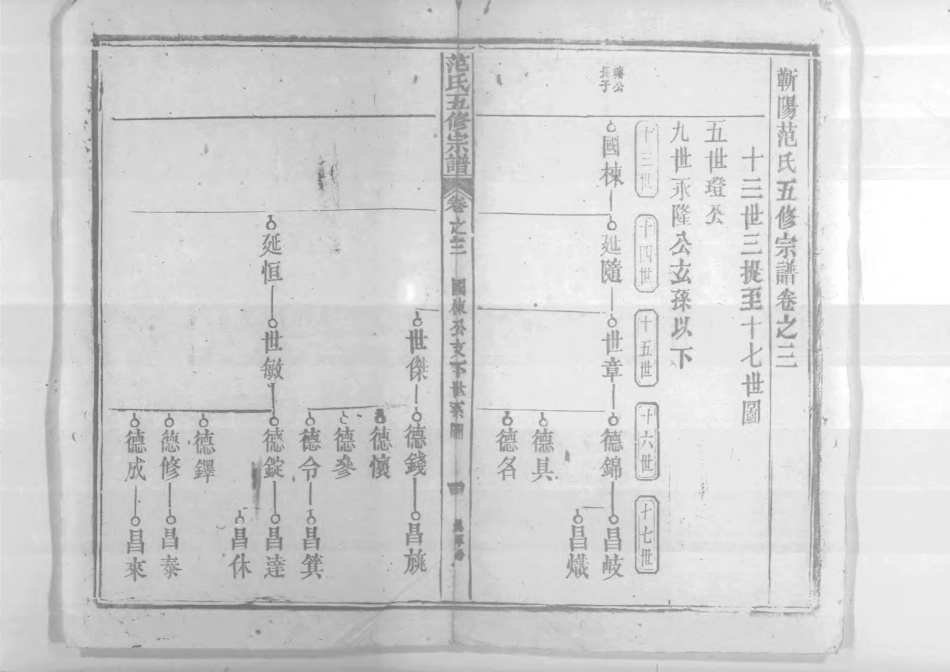 蘄陽范氏五修宗譜卷之三
十三世三提至十七世圖
五世璒公
九世永隆公玄孫以下
十三世
十四世
十五世
十六世
十七世
公長子
國棟
延隨
世章
德錦
昌岐
昌熾
德具
德名
范氏五修宗譜
卷之三
國棟公支下世系圖
世傑
德錢
昌旐
德懷
德參
德令
昌箕
延恒
世敏
德錠
昌達
昌休
德鐸
德修
昌泰
德成
昌來